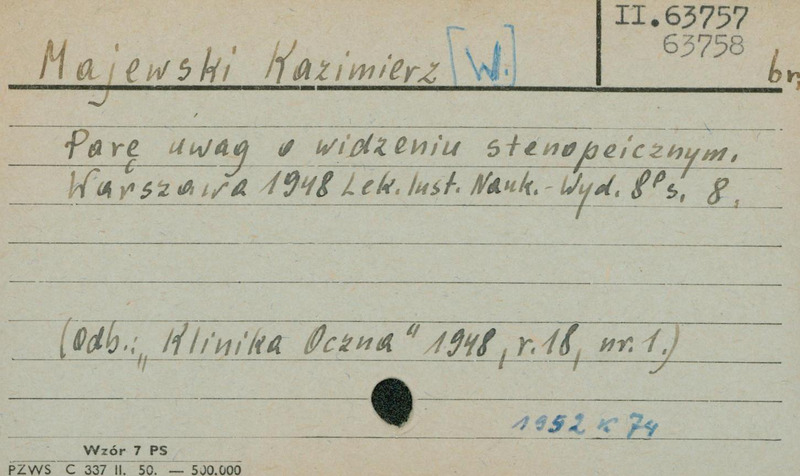 II.63757
63758
Majewski Kazimierz [W.]
br.
Parę uwag o widzeniu stenopeicznym.
Warszawa 1948 Lek. Inst. Nauk.-Wyd. 8° s. 8.
(Odb.: „Klinika Oczna" 1948, r. 18, nr. 1.)
1952 K 74
Wzór 7 PS
PZWS C 337 II. 50. — 500.000